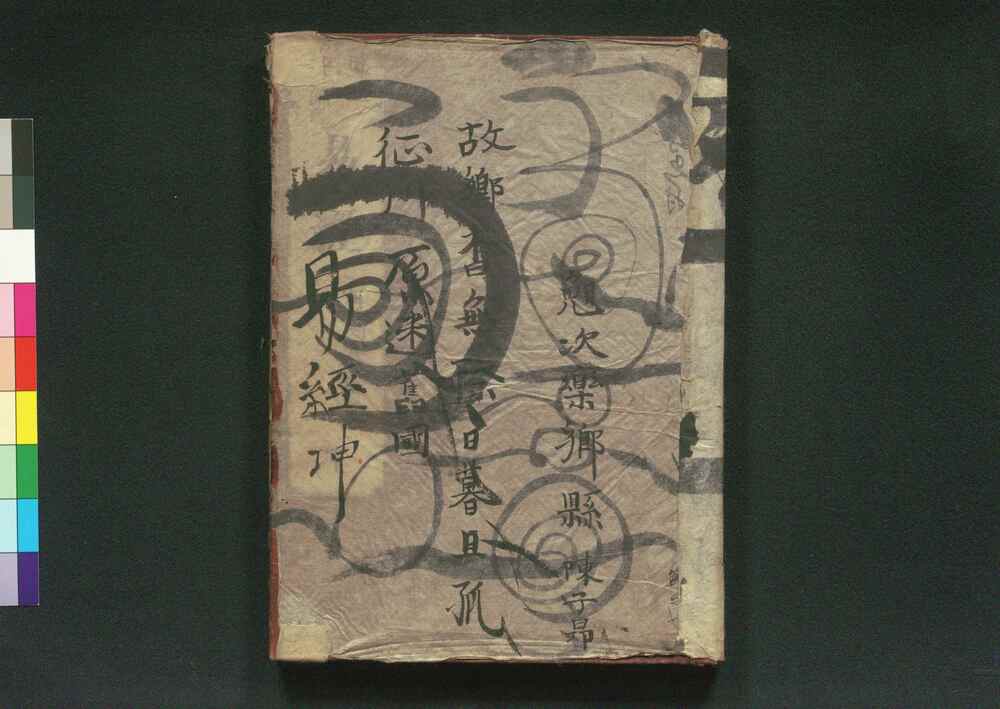 晚次樂鄉縣 陳子昂
故鄉杳無際日暮且孤
征川原迷舊國
易經坤